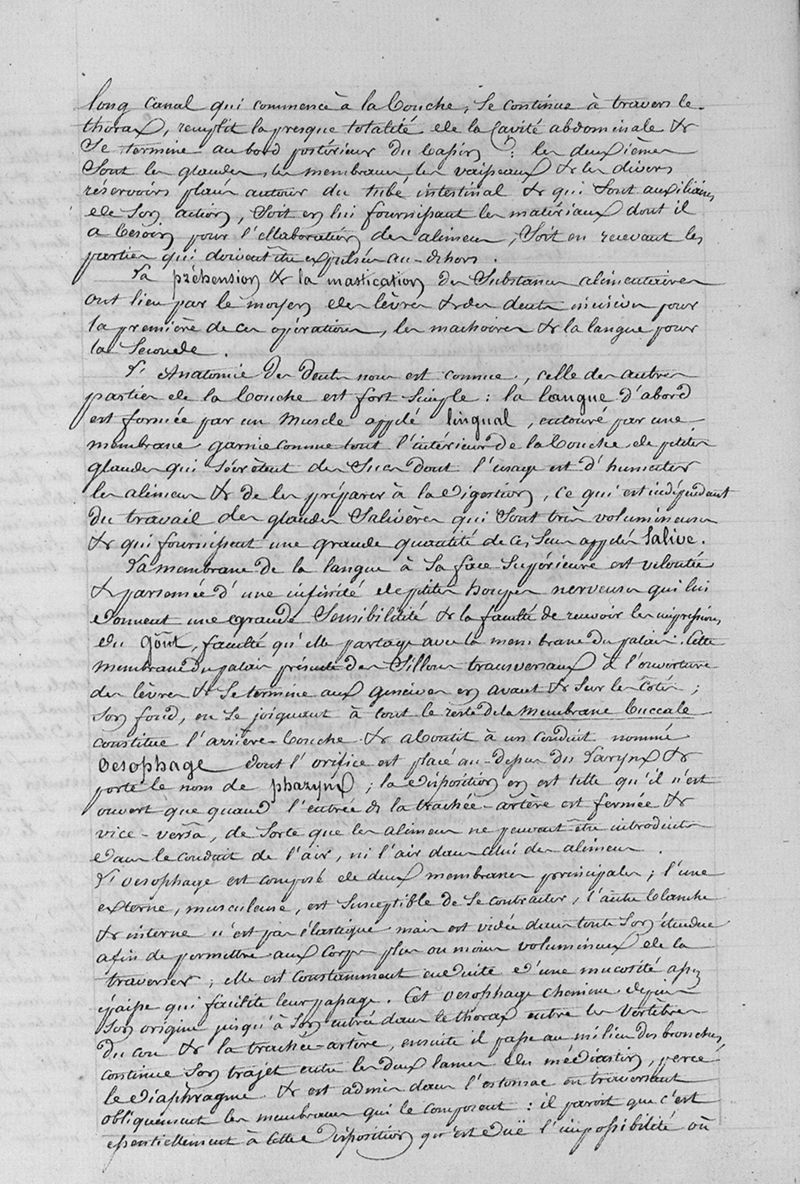 long canal qui commence à la bouche, se continue à travers le
thorax, remplit la presque totalité de la cavité abdominale &
se termine au bord postérieur du bassin : les deuxièmes
sont les glandes, les membranes les vaisseaux & les divers
réservoirs placés autour du tube intestinal & qui sont auxiliaires
de son action, soit en lui fournissant les matériaux dont il
a besoin pour l'ellaboration des alimens, soit en recevant les
parties qui doivent être expulsées au-dehors.
La préhension & la mastication des substances alimentaires
ont lieu par le moyen des lèvres & des dents incisives pour
la première de ces opérations, les machoires & la langue pour
la seconde.
L'Anatomie des dents nous est connue, celle des autres
parties de la bouche est fort simple : la langue d'abord
est formée par un muscle appelé lingual, entouré par une
membrane garnie comme tout l'intérieur de la bouche de petites
glandes qui sécrètent des sucs dont l'usage est d'humecter
les alimens & de les préparer à la digestion, ce qui est indépendant
du travail des glandes salivères qui sont très volumineuses
& qui fournissent une grande quantité de ces sucs appelés salive.
La membrane de la langue à sa face supérieure est veloutée
& parsemée d'une infinité de petites houpes nerveuses qui lui
donnent une grande sensibilité & la faculté de recevoir les impressions
du goût, faculté qu'elle partage avec la membrane du palais. Cette
membrane du palais présente des sillons transversaux à l'ouverture
des lèvres & se termine aux gencives en avant & sur les côtés ;
son fond, en se joignant à tout le reste de la membrane buccale
constitue l'arrière-bouche & aboutit à un conduit nommé
oesophage dont l'orifice est placé au-dessus du larynx &
porte le nom de pharynx ; la disposition en est telle qu'il n'est
ouvert que quand l'entrée de la trachée-artère est fermée &
vice-versâ, de sorte que les alimens ne peuvent être introduits
dans le conduit de l'air, ni l'air dans celui des alimens.
L'oesophage est composé de deux membranes principales ; l'une
externe, musculeuse, est susceptible de se contracter, l'autre blanche
& interne n'est pas élastique mais est ridée dans toute son étendue
afin de permettre aux corps plus ou moins volumineux de la
traverser ; elle est constamment enduite d'une mucosité assez
épaisse qui facilite leur passage. Cet oesophage chemine depuis
son origine jusqu'à son entrée dans le thorax entre les vertèbres
du cou & la trachée-artère, ensuite il passe au milieu des bronches
continue son trajet entre les deux lames du médiastin, perce
le diaphragme & est admis dans l'estomac en traversant
obliquement les membranes qui le composent : il paroit que c'est
essentiellement à cette disposition qu'est duë l'impossibilité où